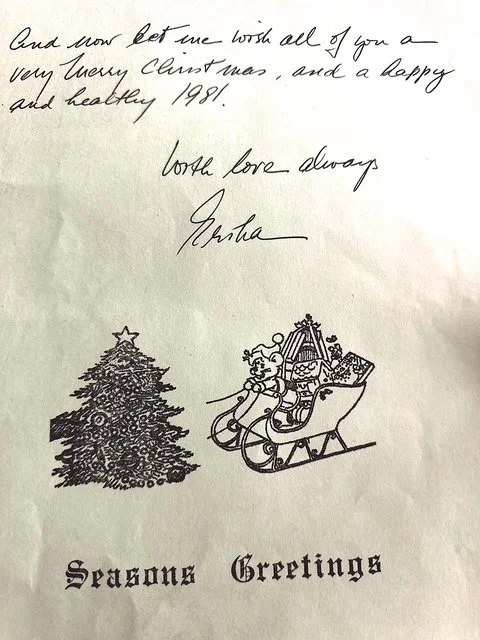 And now let me wish all of you a
very Merry Christmas, and a happy
and healthy 1981.
With love always
Seasons Greetings